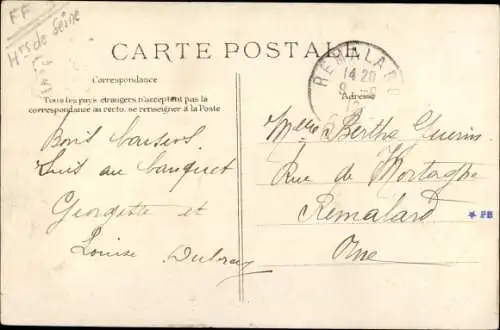 FF
Hts de Seine
CARTE POSTALE
REMALARD
14 28
9
Correspondance
Adresse
Tous les pays étrangers n'acceptent pas la
correspondance au recto. se renseigner à la Poste
Bons baisers
Suis au banquet
Georgette et
Louise Dubray
Melle Berthe Guerin
Rue de Mortagne
Remalard
Orne
* FB